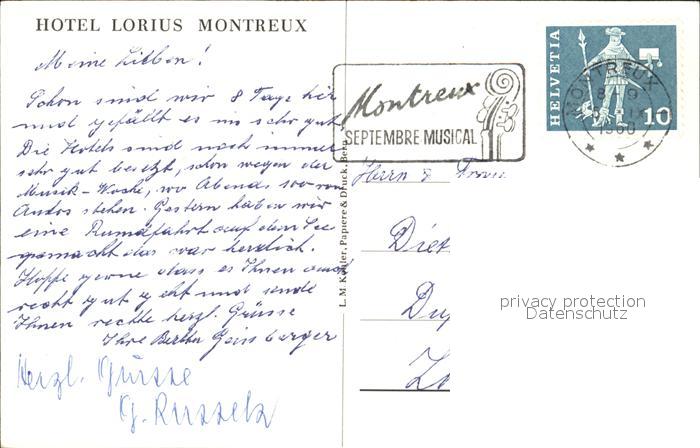 HOTEL LORIUS MONTREUX
Meine Lieben!
Schon sind wir 8 Tage hier
und gefällt es uns sehr gut
Die Hotels sind noch immer
sehr gut besetzt, schon wegen der
Musik-Woche, wo Abends 100 von
Autos stehen. Gestern haben wir
eine Rundfahrt auf dem See
gemacht das war herrlich.
Hoffe gerne dass es Ihnen auch
recht gut geht und sende
Ihnen rechte herzl. Grüsse
Ihre Bertha Geissberger
Herzl. Grüsse
G.
L. M. Kohler, Papiere & Druck, Bern
Montreux
SEPTEMBRE MUSICAL
HELVETIA
10
MONTREUX
1960
Herrn & Frau
Diet
Du
privacy protection
Datenschutz